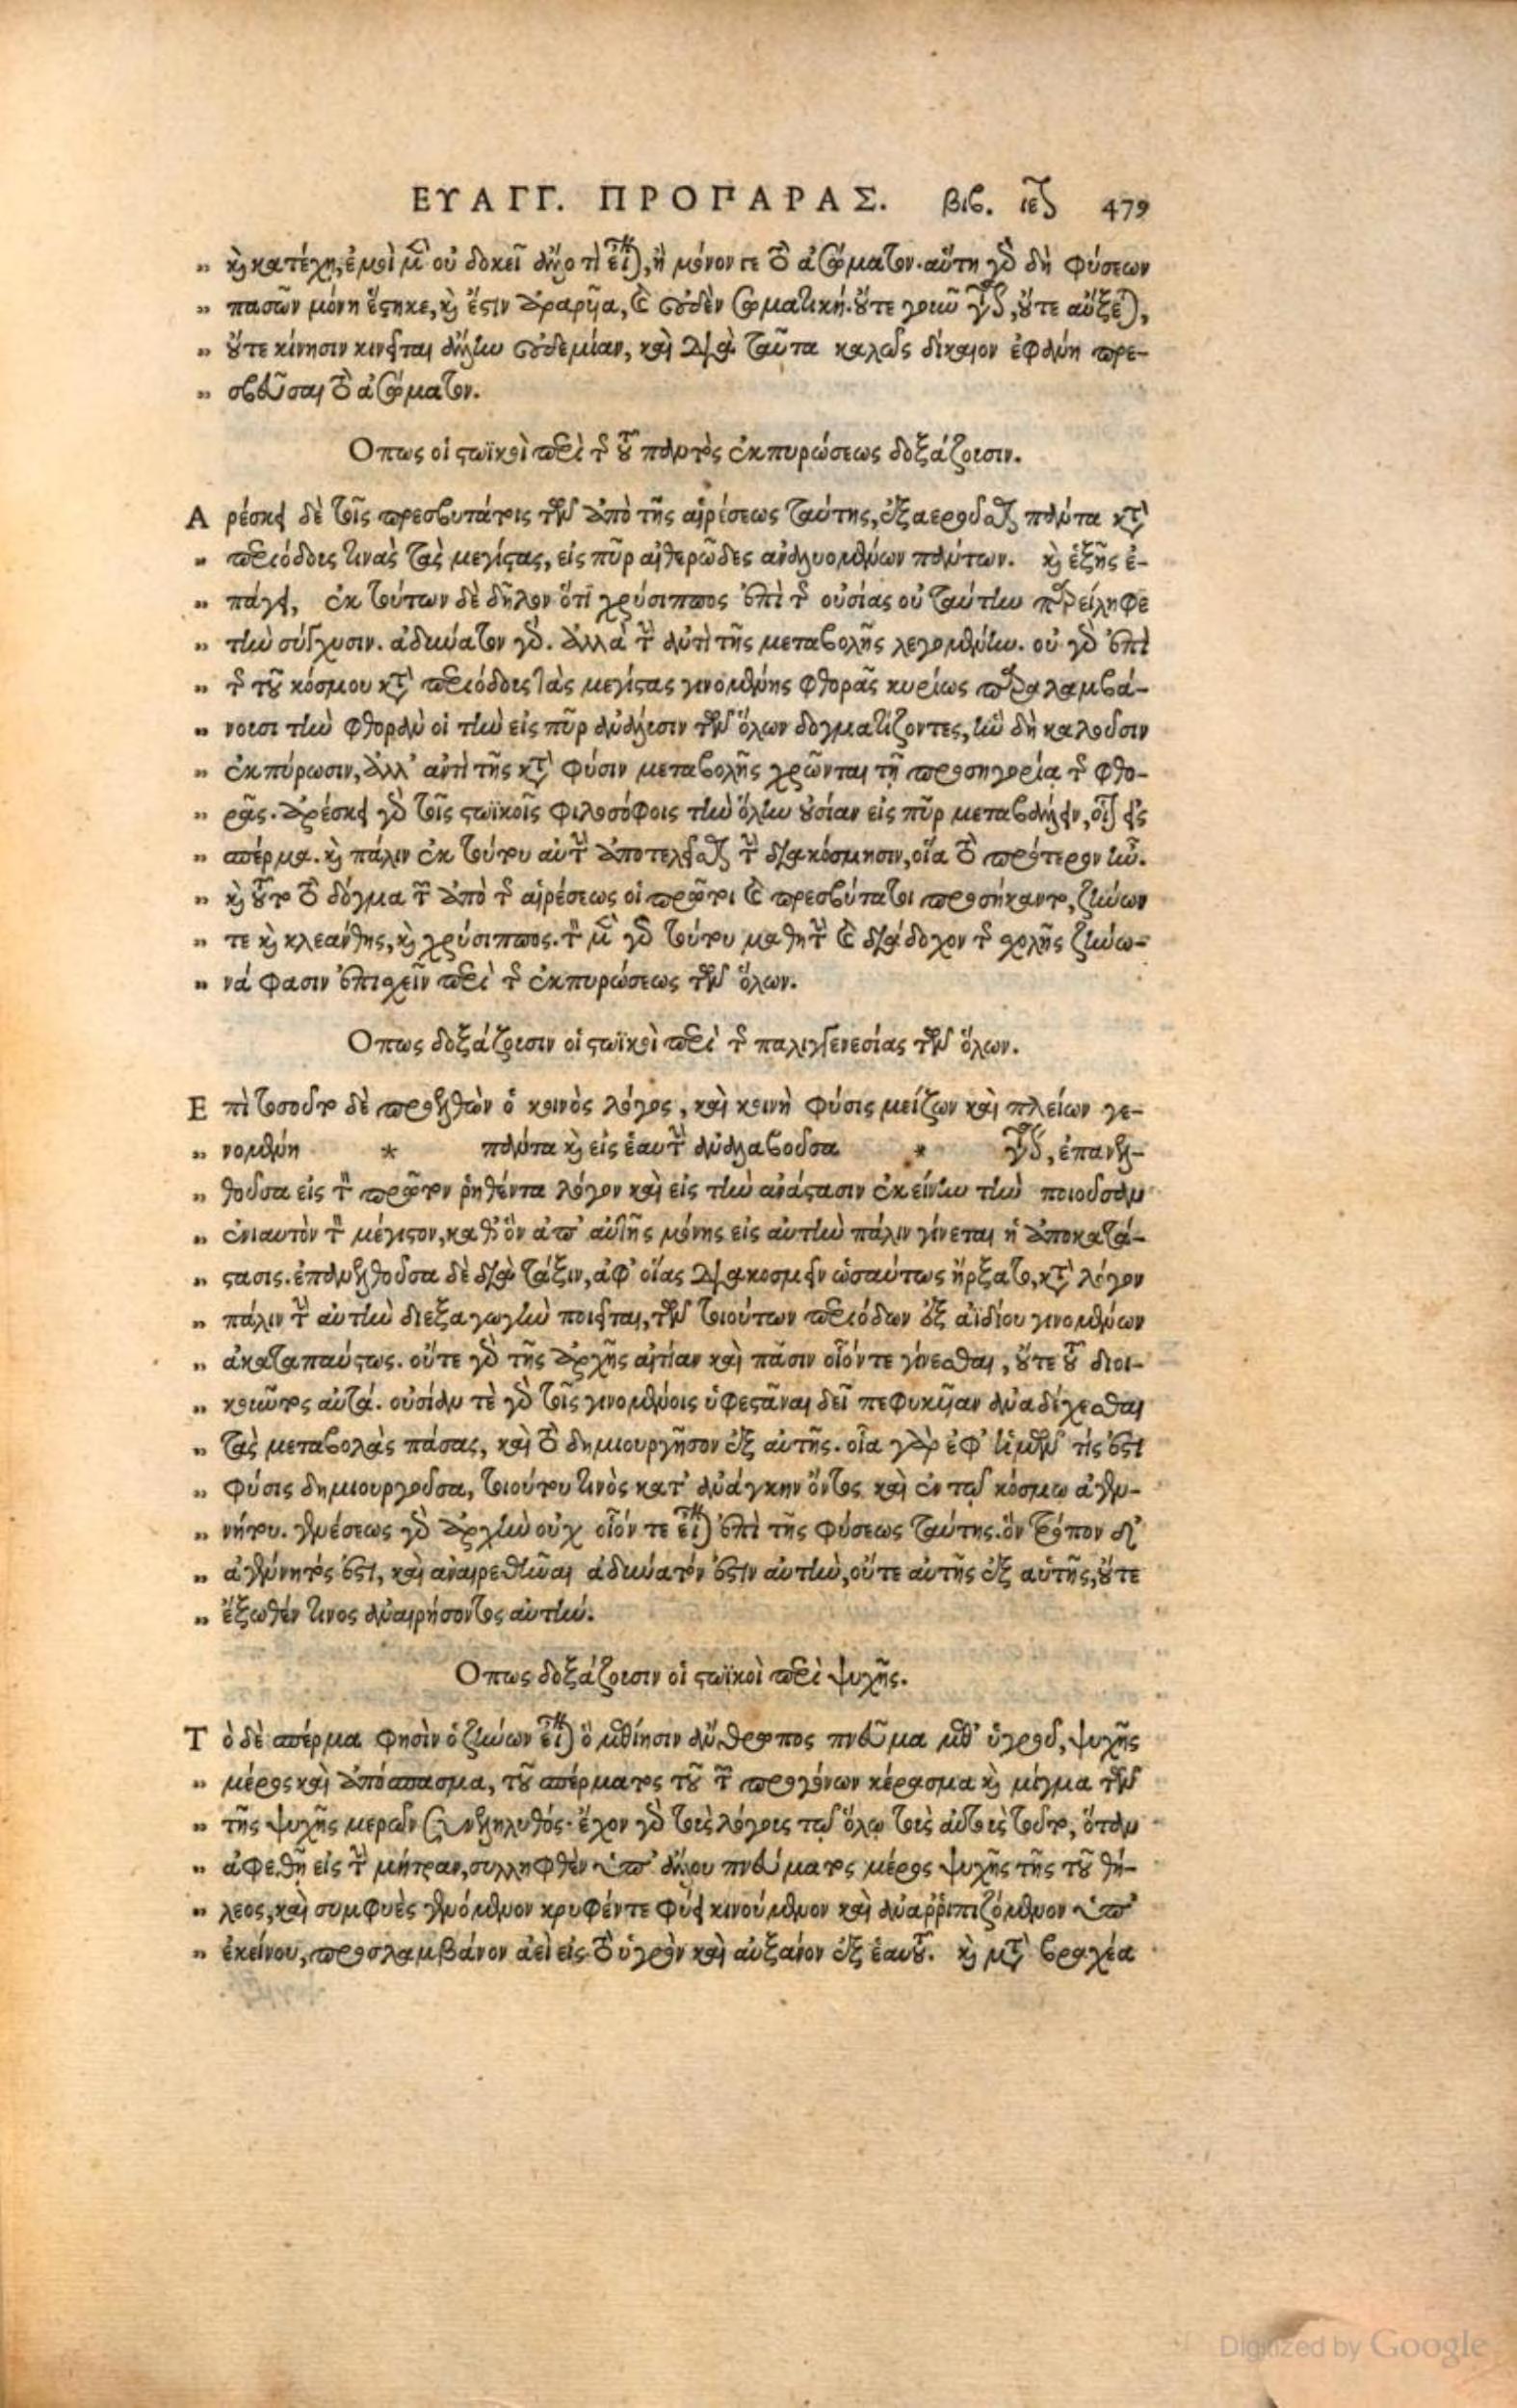 ΕΥΑΓΓ. ΠΡΟΠΑΡΑΣ. βιβ. ιε 479
καὶ κατέχῃ, ἐμοὶ μὲν οὐ δοκεῖ ἄλλο τὶ εἶναι, ἢ μόνον τε τὸ ἀσώματον. αὕτη γὰρ δὴ φύσεων
πασῶν μόνη ἕστηκε, καὶ ἔστιν ἀραρυῖα, καὶ οὐδὲν σωματική. οὔτε γοιῦ γίνεται, οὔτε αὔξεται,
οὔτε κίνησιν κινεῖται ἄλλην οὐδεμίαν, καὶ διὰ ταῦτα καλῶς δίκαιον ἐφάνη πρε-
σβεῦσαι τὸ ἀσώματον.
Οπως οἱ στωϊκοὶ περὶ τῆς τοῦ παντὸς ἐκπυρώσεως δοξάζουσιν.
Αρέσκει δὲ τοῖς πρεσβυτάτοις τῶν ἀπὸ τῆς αἱρέσεως ταύτης, ἐξαεροῦσθαι πάντα κατὰ
περιόδους τινὰς τὰς μεγίστας, εἰς πῦρ αἰθερῶδες ἀναλυομένων πάντων. καὶ ἑξῆς ἐ-
πάγει, ἐκ τούτων δὲ δῆλον ὅτι χρύσιππος ἐπὶ τῆς οὐσίας οὐ ταύτην παρείληφε
τὴν σύγχυσιν. ἀδύνατον γάρ. ἀλλὰ τὴν ἀντὶ τῆς μεταβολῆς λεγομένην. οὐ γὰρ ἐπὶ
τῆς τοῦ κόσμου κατὰ περιόδους τὰς μεγίστας γινομένης φθορᾶς κυρίως παραλαμβά-
νουσι τὴν φθορὰν οἱ τὴν εἰς πῦρ ἀνάλυσιν τῶν ὅλων δογματίζοντες, ἣν δὴ καλοῦσιν
ἐκπύρωσιν, ἀλλ' ἀντὶ τῆς κατὰ φύσιν μεταβολῆς χρῶνται τῇ προσηγορίᾳ τῆς φθο-
ρᾶς. ἀρέσκει γὰρ τοῖς στωϊκοῖς φιλοσόφοις τὴν ὅλην οὐσίαν εἰς πῦρ μεταβάλλειν, οἷον εἰς
σπέρμα. καὶ πάλιν ἐκ τούτου αὐτὴν ἀποτελεῖσθαι τὴν διακόσμησιν, οἵα τὸ πρότερον ἦν.
καὶ τοῦτο τὸ δόγμα τῶν ἀπὸ τῆς αἱρέσεως οἱ πρῶτοι καὶ πρεσβύτατοι προσήκαντο, ζήνων
τε καὶ κλεάνθης, καὶ χρύσιππος. τὸν μὲν γὰρ τούτου μαθητὴν καὶ διάδοχον τῆς σχολῆς ζήνω-
νά φασιν ἐπισχεῖν περὶ τῆς ἐκπυρώσεως τῶν ὅλων.
Οπως δοξάζουσιν οἱ στωϊκοὶ περὶ τῆς παλιγγενεσίας τῶν ὅλων.
Επὶ τοσοῦτο δὲ προελθὼν ὁ κοινὸς λόγος, καὶ κοινὴ φύσις μείζων καὶ πλείων γε-
νομένη * πάντα καὶ εἰς ἑαυτὴν ἀναλαβοῦσα * γίνεται, ἐπανελ-
θοῦσα εἰς τὸν πρῶτον ῥηθέντα λόγον καὶ εἰς τὴν ἀνάστασιν ἐκείνην τὴν ποιοῦσαν
ἐνιαυτὸν τὸν μέγιστον, καθ' ὃν ἀπ' αὐτῆς μόνης εἰς αὐτὴν πάλιν γίνεται ἡ ἀποκατά-
στασις. ἐπανελθοῦσα δὲ διὰ τάξιν, ἀφ' οἵας διακοσμεῖν ὡσαύτως ἤρξατο, κατὰ λόγον
πάλιν τὴν αὐτὴν διεξαγωγὴν ποιεῖται, τῶν τοιούτων περιόδων ἐξ ἀϊδίου γινομένων
ἀκαταπαύστως. οὔτε γὰρ τῆς ἀρχῆς αἰτίαν καὶ πᾶσιν οἷόντε γίνεσθαι, οὔτε τοῦ διοι-
κοῦντος αὐτά. οὐσίαν τὲ γὰρ τοῖς γινομένοις ὑφεστᾶναι δεῖ πεφυκυῖαν ἀναδέχεσθαι
τὰς μεταβολὰς πάσας, καὶ τὸ δημιουργῆσον ἐξ αὐτῆς. οἵα γὰρ ἐφ' ἡμῶν τίς ἐστι
φύσις δημιουργοῦσα, τοιούτου τινὸς κατ' ἀνάγκην ὄντος καὶ ἐν τῷ κόσμῳ ἀγεν-
νήτου. γενέσεως γὰρ ἀρχὴν οὐχ οἷόν τε εἶναι ἐπὶ τῆς φύσεως ταύτης. ὃν τρόπον δὲ
ἀγέννητός ἐστι, καὶ ἀναιρεθῆναι ἀδύνατόν ἐστιν αὐτὴν, οὔτε αὐτῆς ἐξ αὑτῆς, οὔτε
ἔξωθέν τινος ἀναιρήσοντος αὐτήν.
Οπως δοξάζουσιν οἱ στωϊκοὶ περὶ ψυχῆς.
Τὸ δὲ σπέρμα φησὶν ὁ ζήνων εἶναι ὃ μεθίησιν ἄνθρωπος πνεῦμα μεθ' ὑγροῦ, ψυχῆς
μέρος καὶ ἀπόσπασμα, τοῦ σπέρματος τοῦ τῶν προγόνων κέρασμα καὶ μίγμα τῶν
τῆς ψυχῆς μερῶν συνεληλυθός. ἔχον γὰρ τοὺς λόγους τῷ ὅλῳ τοὺς αὐτοὺς τοῦτο, ὅταν
ἀφεθῇ εἰς τὴν μήτραν, συλληφθὲν ὑπ' ἄλλου πνεύματος μέρος ψυχῆς τῆς τοῦ θή-
λεος, καὶ συμφυὲς γενόμενον κρυφέντε φύει κινούμενον καὶ ἀναῤῥιπιζόμενον ὑπ'
ἐκείνου, προσλαμβάνον ἀεὶ εἰς τὸ ὑγρὸν καὶ αὐξανον ἐξ ἑαυτοῦ. καὶ μετὰ βραχέα
Digitized by Google